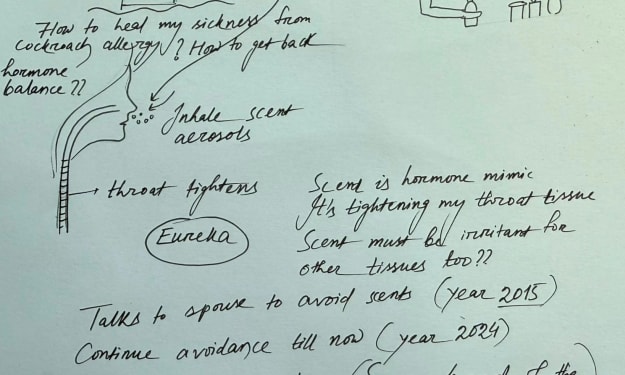 How to heal my sickness from
cockroach allergy? How to get back
hormone
balance??
Inhale scent
aerosols
throat tightens
Eureka
Scent is hormone mimic
It's tightening my throat tissue
Scent must be irritant for
other tissues too??
Talks to spouse to avoid scents (year 2015)
Continue avoidance till now (year 2024)